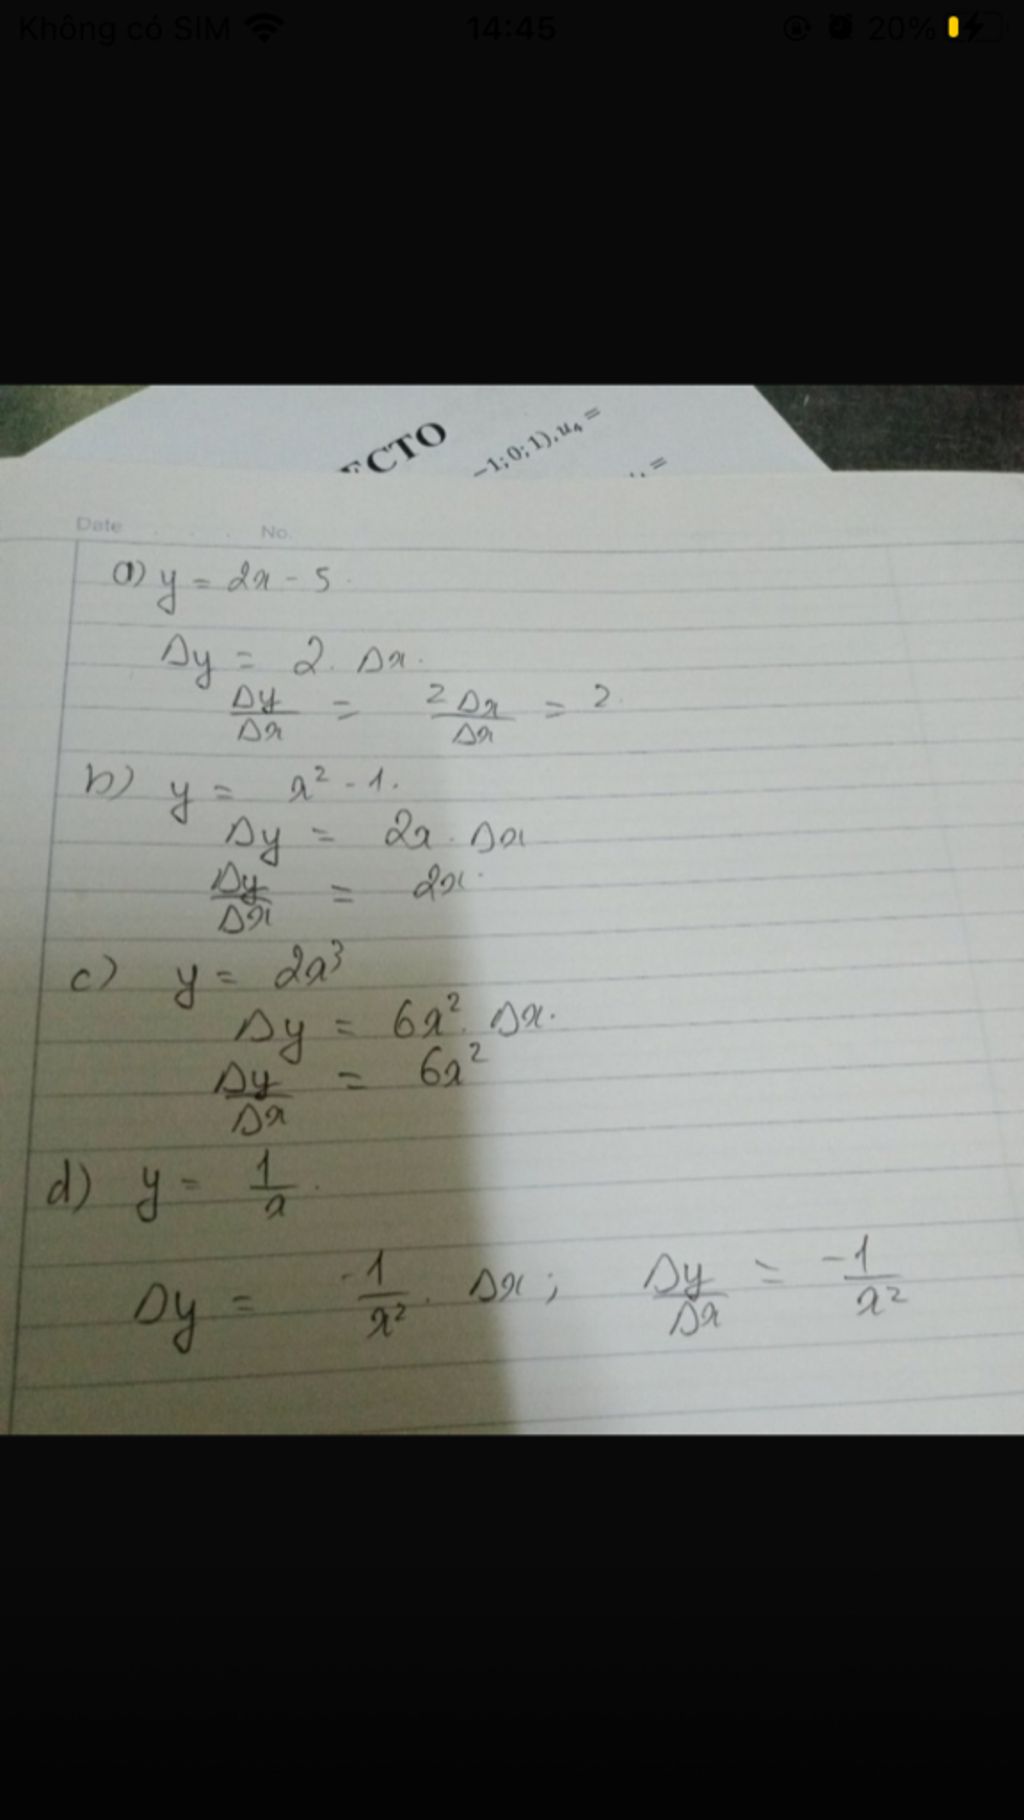 Không có SIM 14:45 20%
ECTO
-1; 0; 1), u₄ =
Date No.
a) y = 2x - 5
Δy = 2. Δx.
Δy/Δx = 2Δx/Δx = 2.
b) y = x² - 1.
Δy = 2x. Δx
Δy/Δx = 2x.
c) y = 2x³
Δy = 6x². Δx.
Δy/Δx = 6x²
d) y = 1/x.
Δy = -1/x². Δx; Δy/Δx = -1/x²